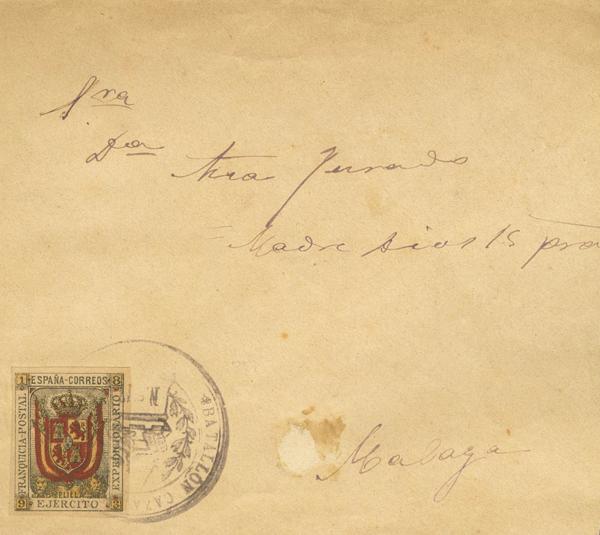 Sra
Da Ana Jurado
Madre Dios 15 pra
Malaga
1 ESPAÑA-CORREOS 8
FRANQUICIA-POSTAL
EXPEDICIONARIO
MELILLA
9 EJERCITO 3
BATALLÓN CAZA